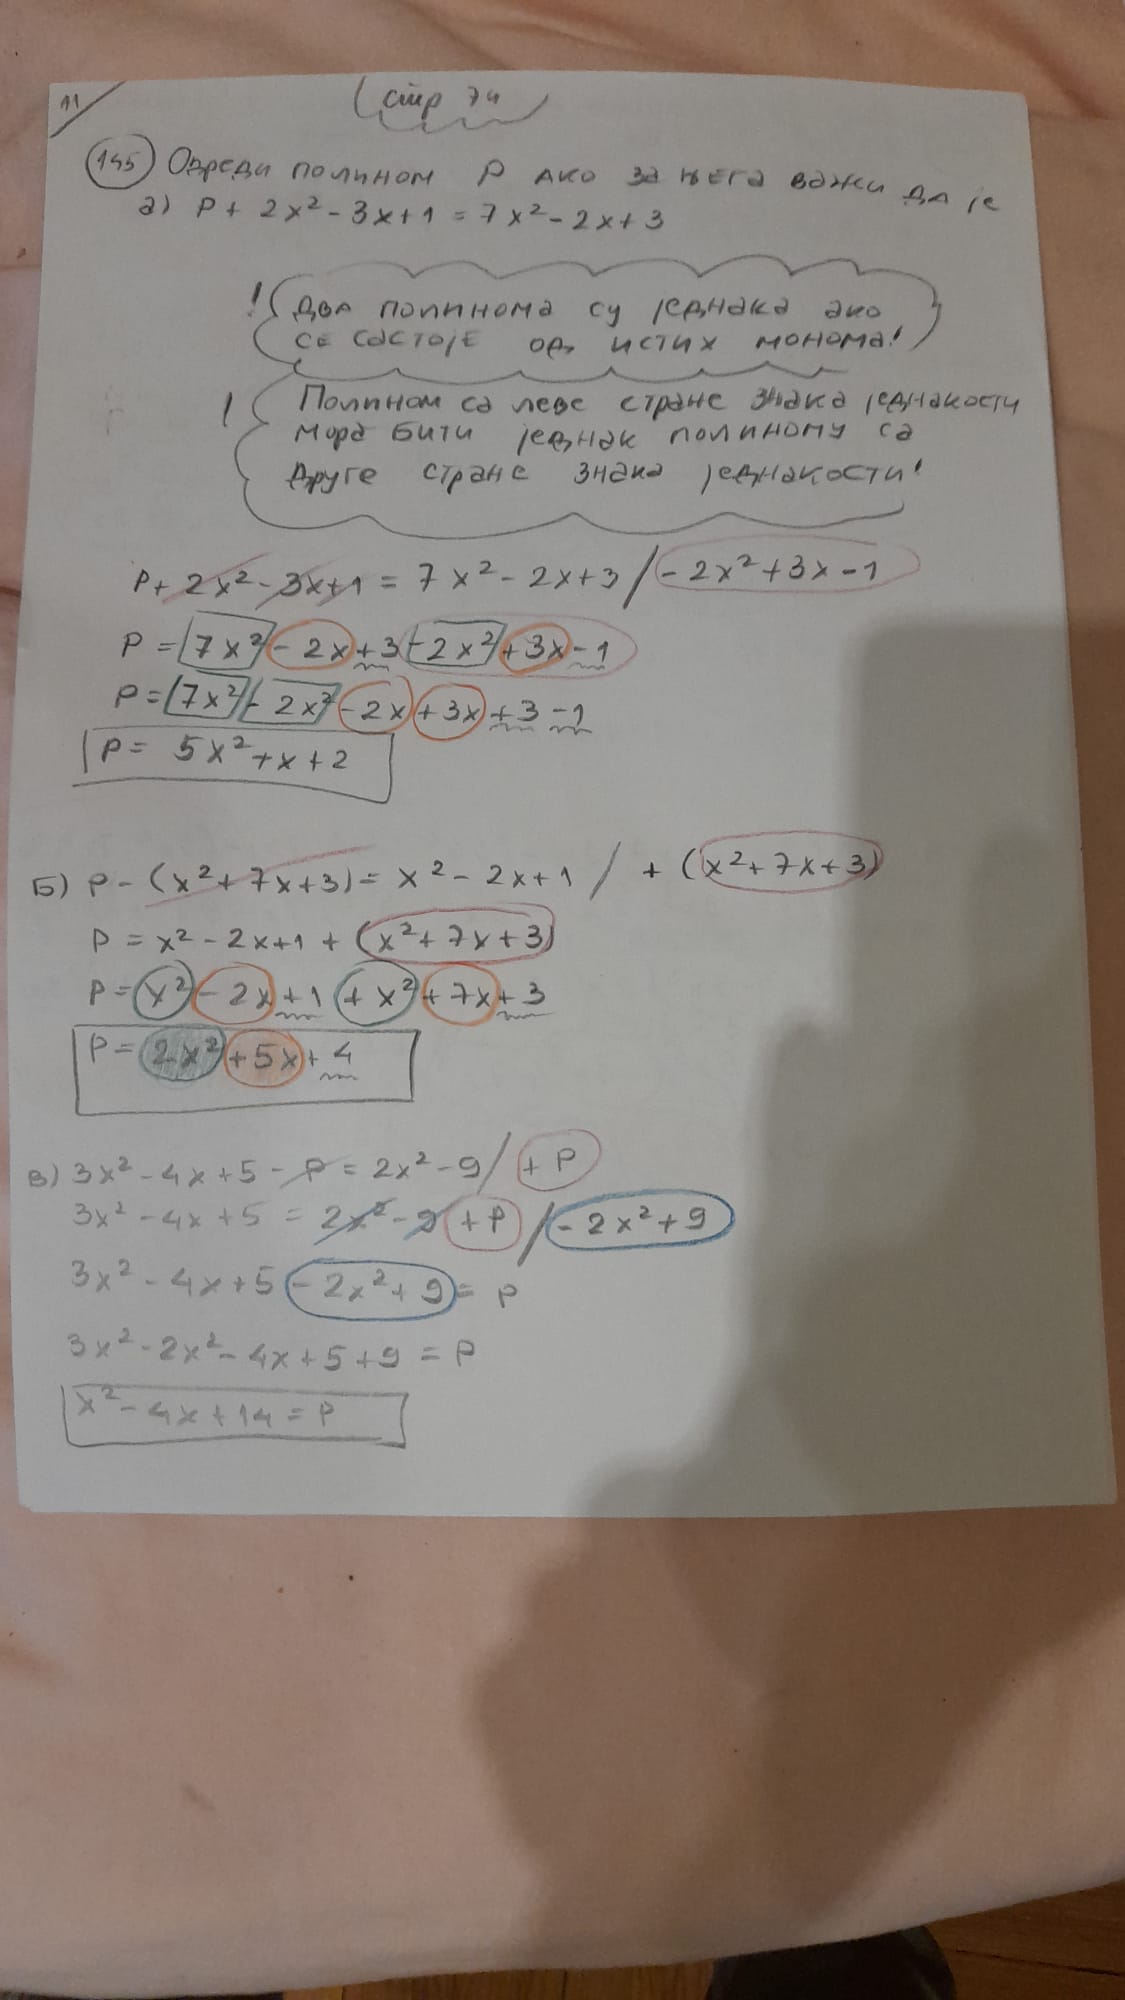 11
стр 74
145 Одреди полином P ако за њега важи да је
а) P + 2x² - 3x + 1 = 7x² - 2x + 3
! Два полинома су једнака ако
се састоје од истих монома!
! Полином са леве стране знака једнакости
мора бити једнак полиному са
друге стране знака једнакости!
P + 2x² - 3x + 1 = 7x² - 2x + 3 / - 2x² + 3x - 1
P = 7x² - 2x + 3 - 2x² + 3x - 1
P = 7x² - 2x² - 2x + 3x + 3 - 1
P = 5x² + x + 2
Б) P - (x² + 7x + 3) = x² - 2x + 1 / + (x² + 7x + 3)
P = x² - 2x + 1 + (x² + 7x + 3)
P = x² - 2x + 1 + x² + 7x + 3
P = 2x² + 5x + 4
в) 3x² - 4x + 5 - P = 2x² - 9 / + P
3x² - 4x + 5 = 2x² - 9 + P / - 2x² + 9
3x² - 4x + 5 - 2x² + 9 = P
3x² - 2x² - 4x + 5 + 9 = P
x² - 4x + 14 = P